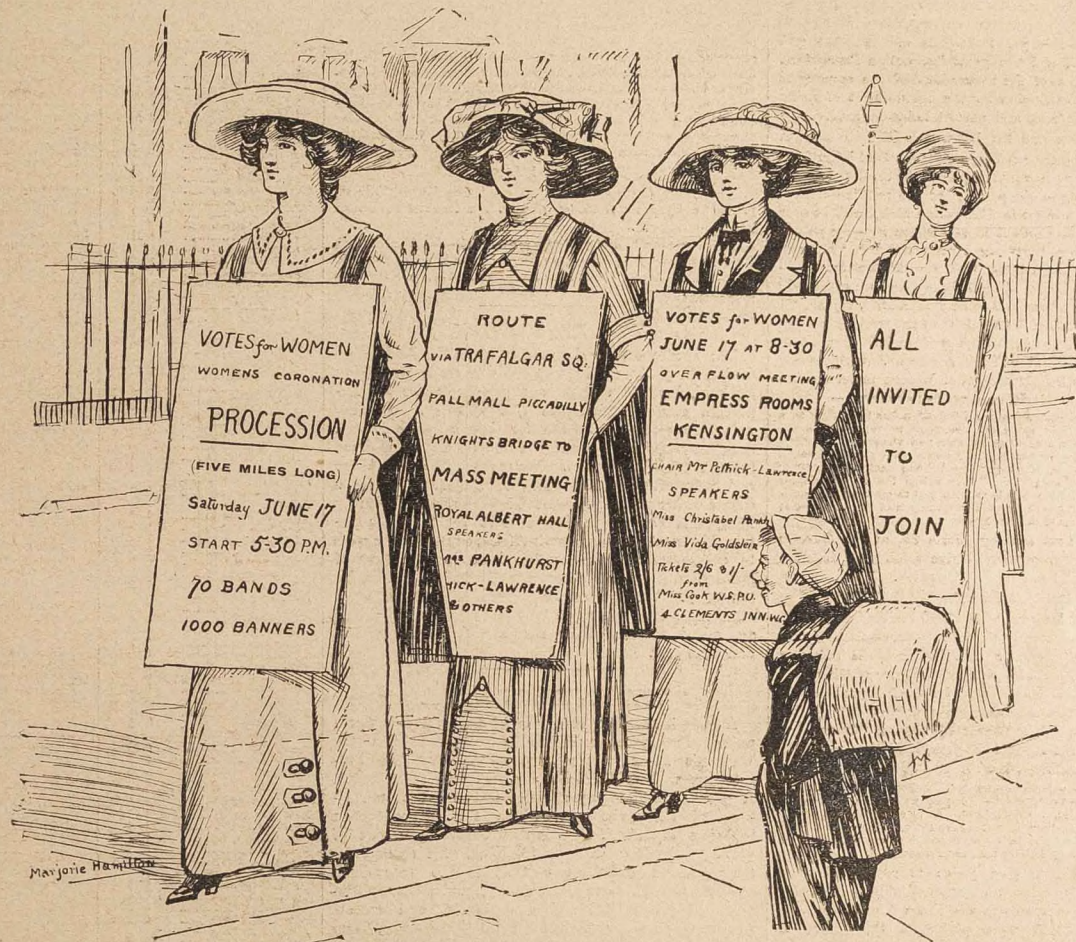 VOTES for WOMEN
WOMENS CORONATION
PROCESSION
(FIVE MILES LONG)
Saturday JUNE 17
START 5-30 P.M.
70 BANDS
1000 BANNERS
ROUTE
VIA TRAFALGAR SQ:
PALL MALL PICCADILLY
KNIGHTSBRIDGE TO
MASS MEETING
ROYAL ALBERT HALL
SPEAKERS
MRS PANKHURST
HICK-LAWRENCE
& OTHERS
VOTES for WOMEN
JUNE 17 AT 8-30
OVERFLOW MEETING
EMPRESS ROOMS
KENSINGTON
CHAIR Mr Pethick-Lawrence
SPEAKERS
Miss Christabel Pankh
Miss Vida Goldstein
Tickets 2/6 & 1/-
from
Miss Cook W.S.P.U.
4 CLEMENTS INN. W.C
ALL
INVITED
TO
JOIN
Marjorie Hamilton